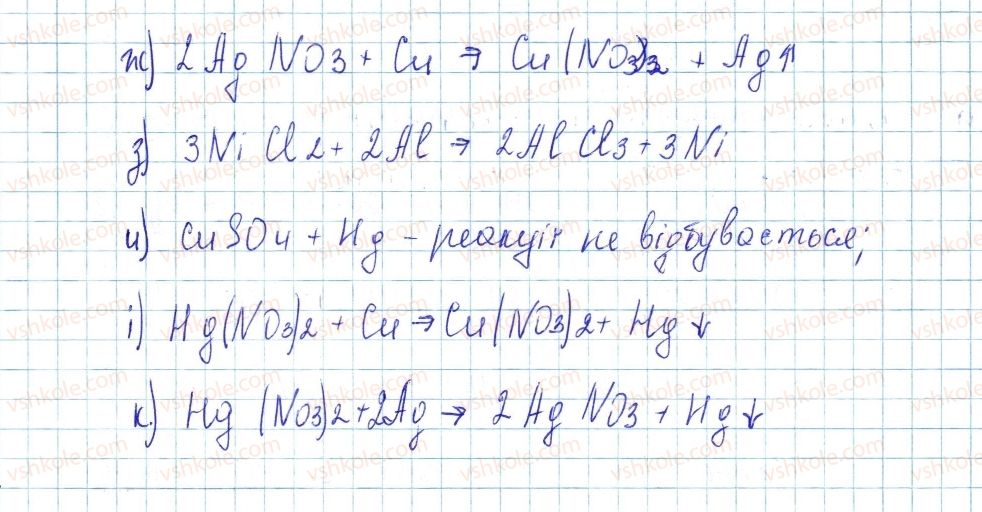 ж) 2 Ag NO3 + Cu → Cu(NO3)2 + Ag↑
з) 3Ni Cl2 + 2Al → 2Al Cl3 + 3Ni
и) CuSO4 + Hg - реакція не відбувається;
і) Hg(NO3)2 + Cu → Cu(NO3)2 + Hg↓
к) Hg (NO3)2 + 2Ag → 2 Ag NO3 + Hg↓